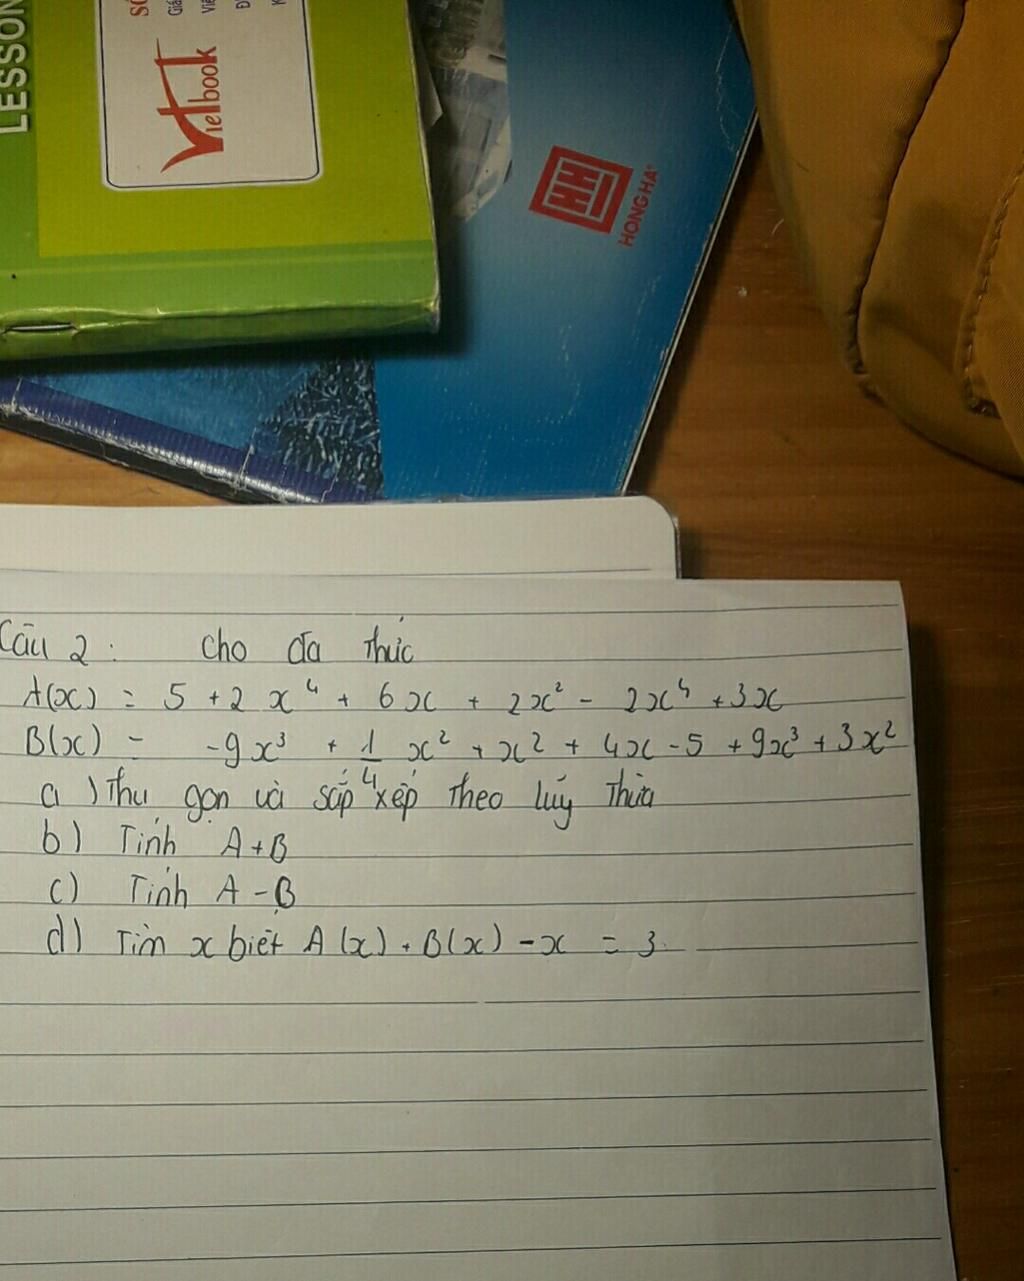 LESSON
Vietbook
HONG HA
Câu 2 : Cho đa thức
A(x) = 5 + 2 x⁴ + 6x + 2x² - 2x⁴ + 3x
B(x) = -9x³ + 1/4 x² + x² + 4x - 5 + 9x³ + 3x²
a ) Thu gọn và sắp xếp theo lũy thừa
b ) Tính A + B
c ) Tính A - B
d ) Tìm x biết A (x) + B(x) - x = 3